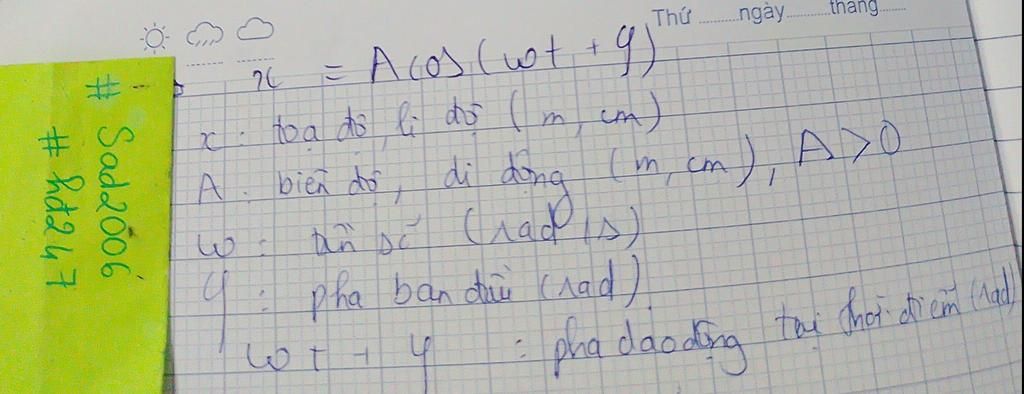 Thứ ..........ngày..........tháng..........
x = A cos(ωt + φ)
x : toạ độ, li độ (m, cm)
A : biên độ, di động (m, cm), A > 0
ω : tần số (rad/s)
φ : pha ban đầu (rad)
ωt + φ : pha dao động tại thời điểm (rad)
# Sad2006
# hd247